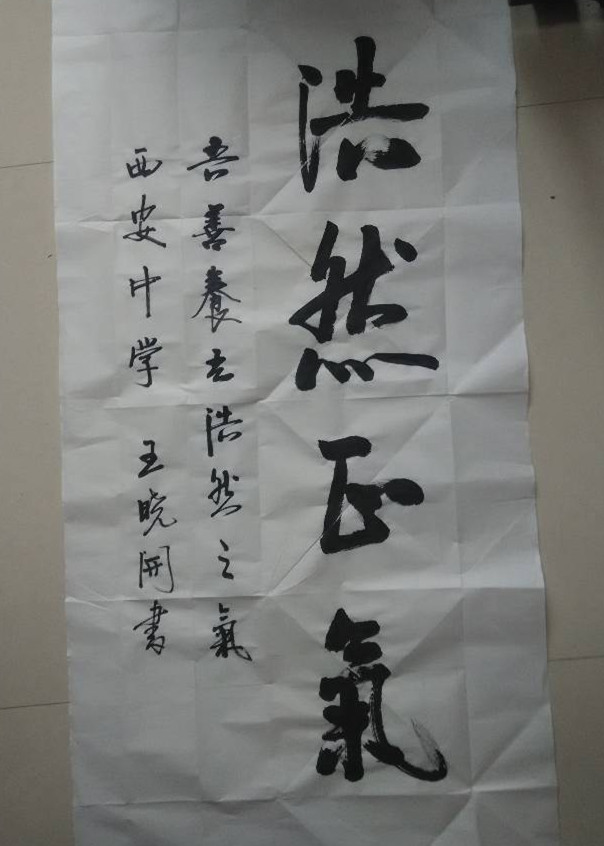 浩然正氣
吾善養吾浩然之氣
西安中学 王晓開書